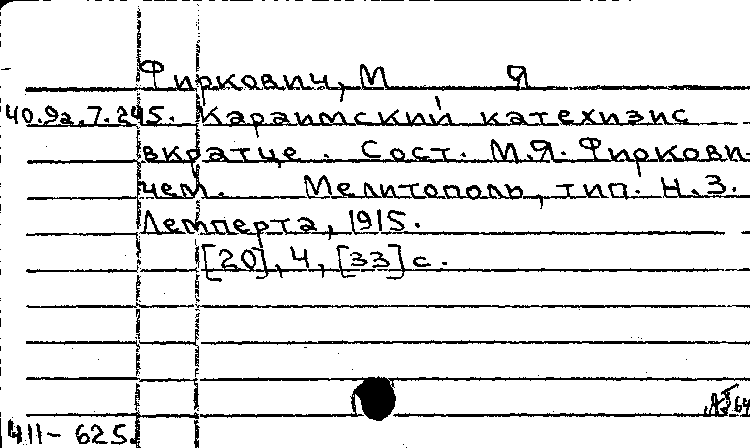 Фиркович, М Я
40.92.7.245. Караимский катехизис
вкратце. Сост. М.Я. Фиркови-
чем. Мелитополь, тип. Н.З.
Лемперта, 1915.
[20], 4, [33] с.
411-625.